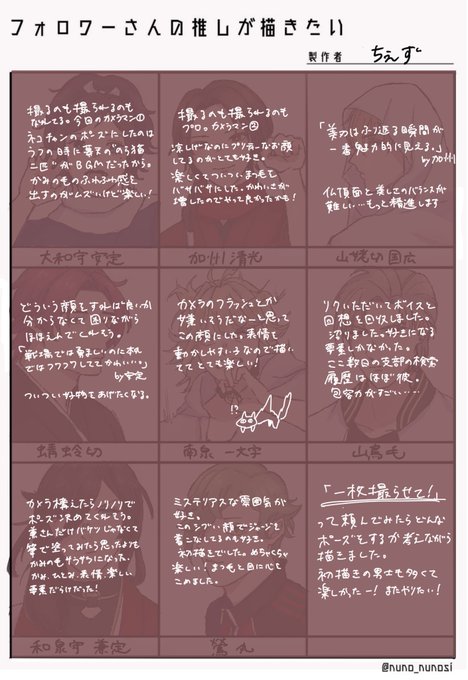 フォロワーさんの推しが描きたい
製作者 ちぇず
撮るのも撮られるのも
なれてる。今回のカメラマン①
ネコチャンのポーズにしたのは
ラフの時に暮での"のら猫
二匹"がBGMだったから。
かみのもふふわ感を
出すのがムズいけど楽しい!
大和守安定
撮るのも撮られるのも
プロ。カメラマン②
涼しげなのにプリティーなお顔
してるのがとても好き。
楽しくてついつい、まつもと
バサバサにした。かわいさが
増したのでやって良かったかも!
加州清光
「美刃はふり返る瞬間が
一番魅力的に見える。」
by加州
仏頂面と美しさのバランスが
難しい…もっと精進します
山姥切国広
どういう顔をすれば良いか
分からなくて困りながら
ほほえんでくれそう。
「戦場では勇ましいのに本丸
ではフワフワしててかわいい…」
by安定
ついつい好物をあげたくなる。
蜻蛉切
カメラのフラッシュとか
嫌いそうだなーと思って
この顔にした。表情を
動かしやすい子なので描い
ててとても楽しい!
!?
南泉一文字
リクいただいてボイスと
回想を回収しました。
沼りました。好きになる
要素しかなかった。
ここ数日の支部の検索
履歴はほぼ彼。
包容力がすごい……
山鳥毛
カメラ構えたらノリノリで
ポーズ決めてくれそう。
兼さんだけバケツじゃなくて
筆で塗ってみたら思ったよりも
かみのもサラサラになった。
かみ、ひとみ、表情、楽しい
要素だらけだった!
和泉守兼定
ミステリアスな雰囲気が
好き。
このシブい顔でジョークを
言こなしてるのも好き。
初描きでした。めちゃくちゃ
楽しい!まつもと目に心を
こめました。
鶯丸
「一枚撮らせて!」
って頼んでみたらどんな
ポーズをするか考えながら
描きました。
初描きの男士も多くて
楽しかったー!またやりたい!
@nuno_nunosi